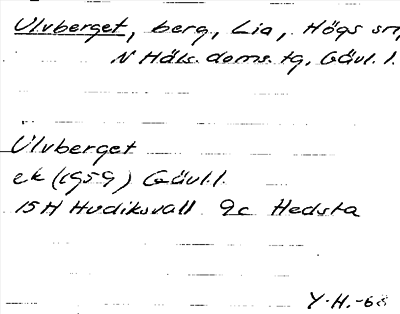 Ulvberget, berg, Lia, Högs sn,
N Häls. doms. tg, Gävl. l.
Ulvberget
ek (1959) Gävl.l.
15H Hudiksvall 9c Hedsta
Y.H.-68